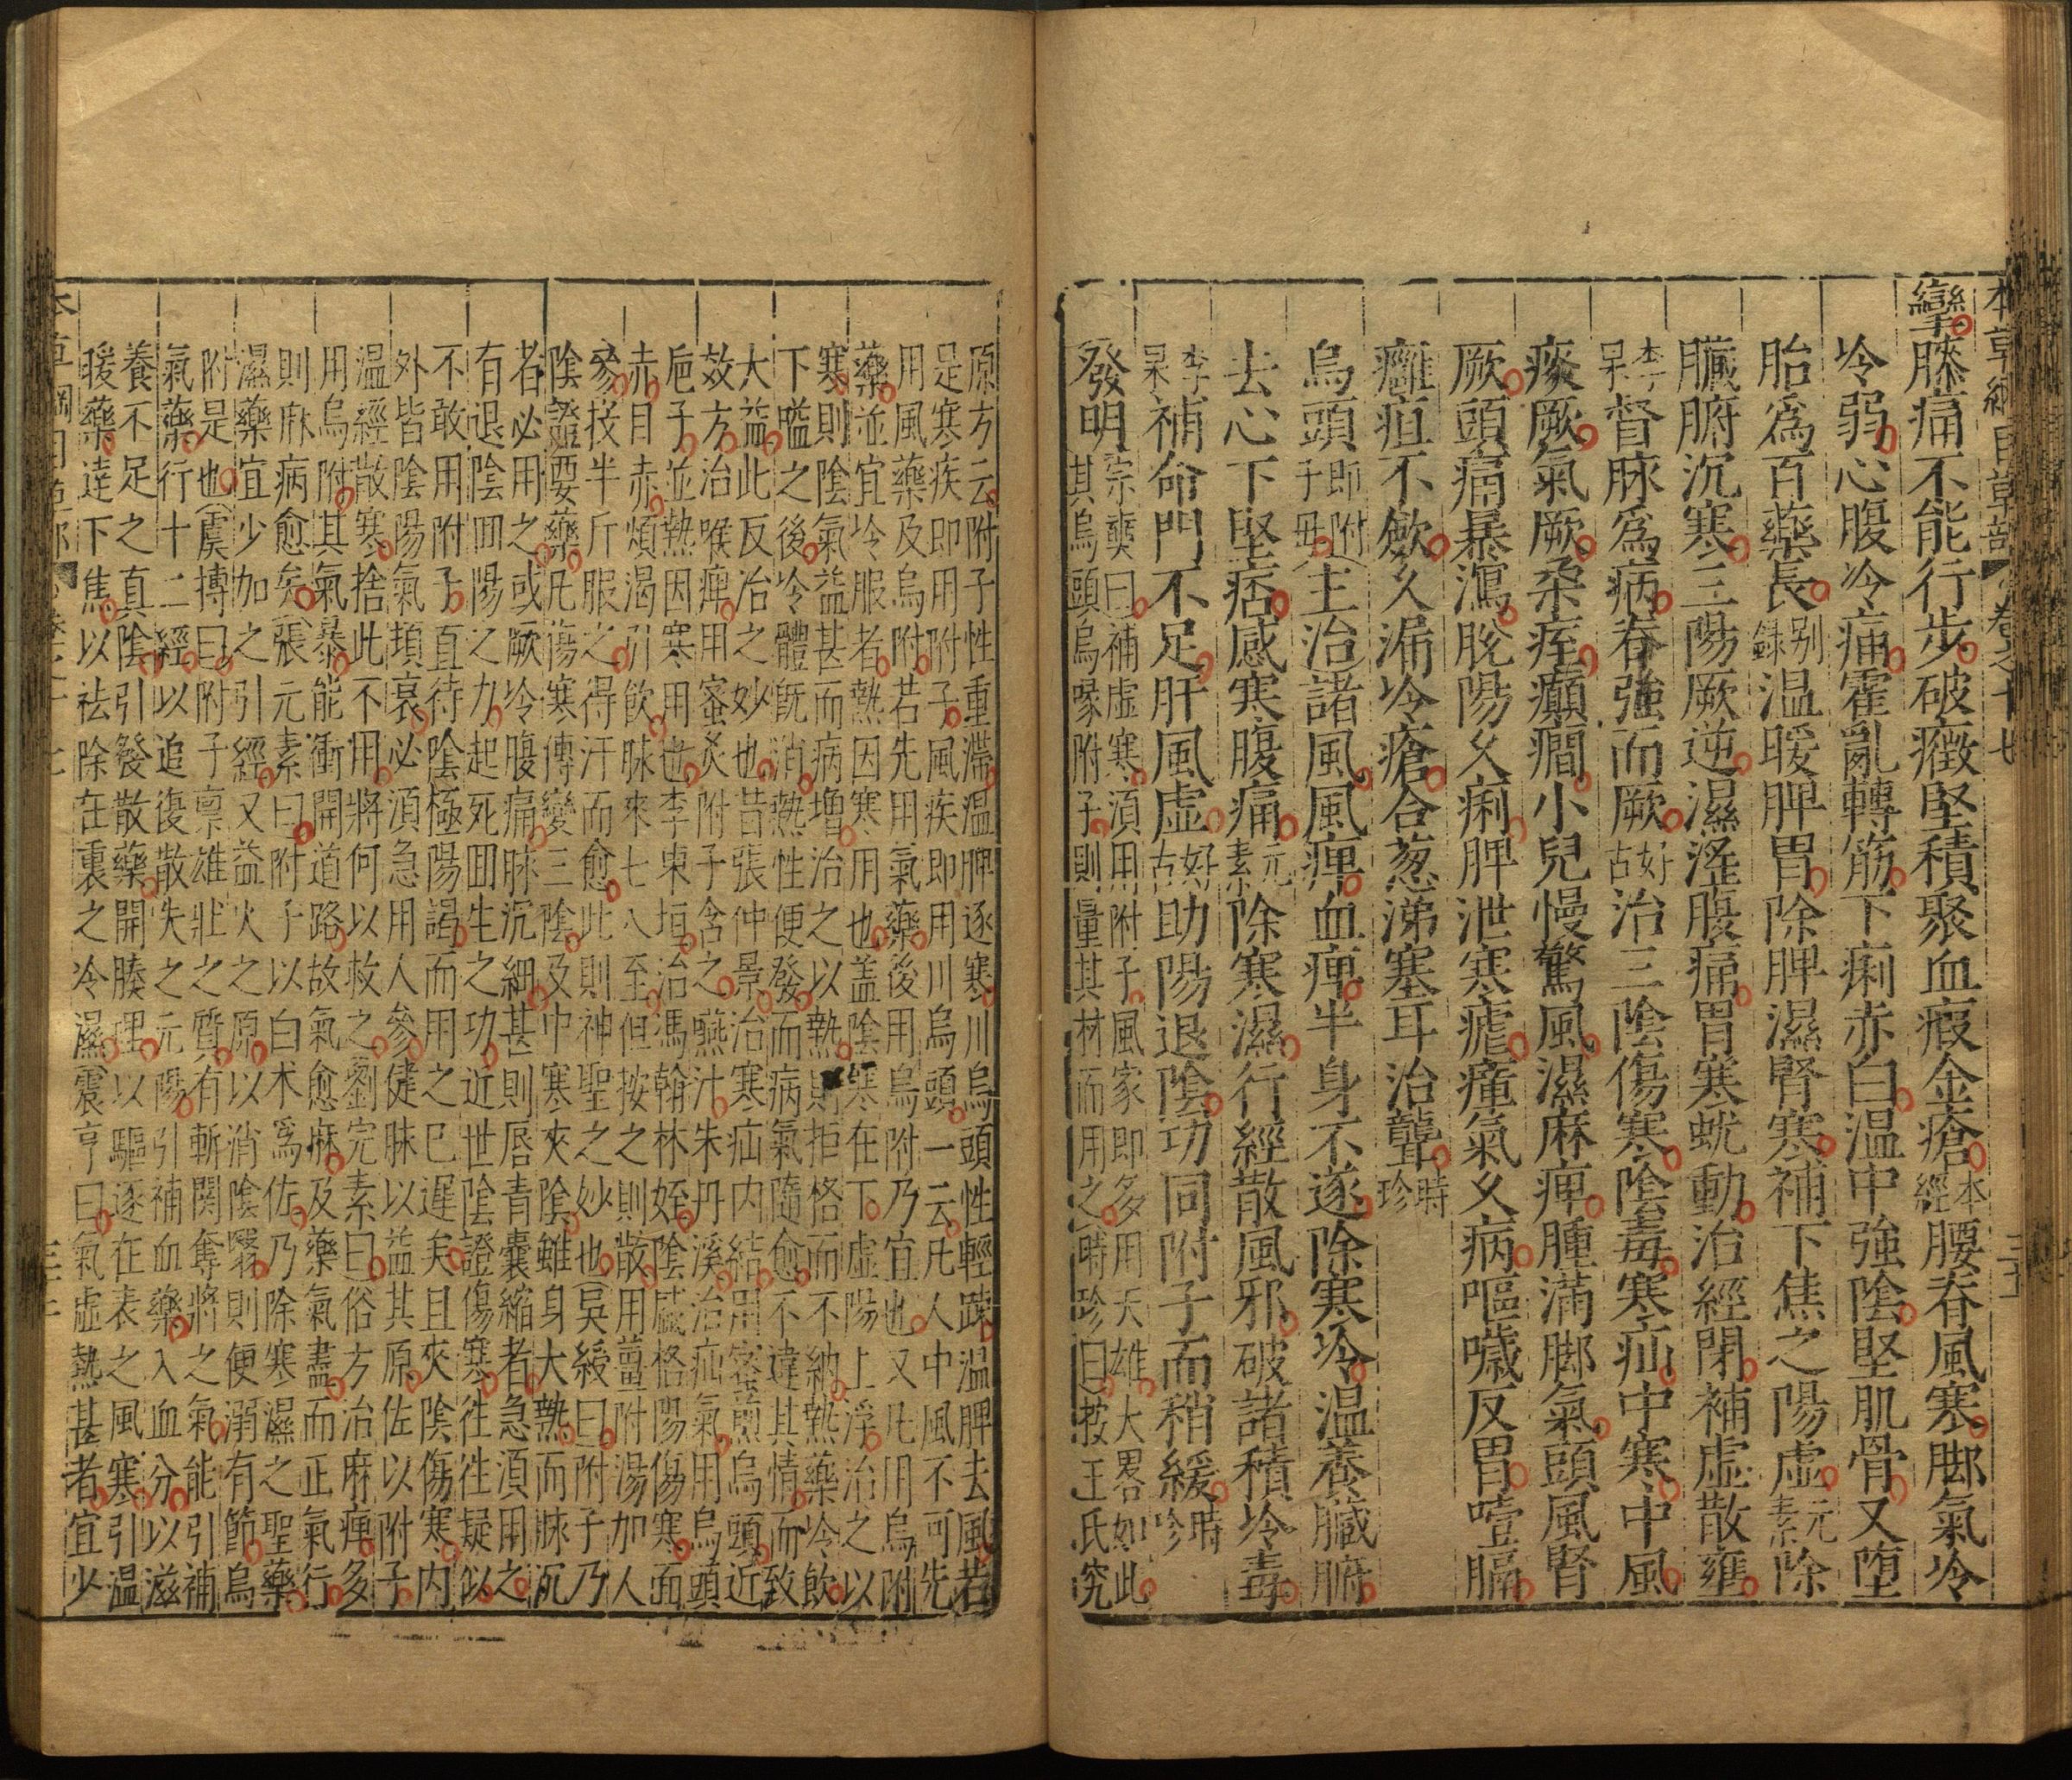 本草綱目草部 卷之十七 三十
攣膝痛不能行步破癥堅積聚血瘕金瘡本經腰脊風寒脚氣冷
冷弱心腹冷痛霍亂轉筋下痢赤白温中強陰堅肌骨又堕
胎爲百藥長别録温暖脾胃除脾濕腎寒補下焦之陽虛元素除
臟腑沉寒三陽厥逆濕淫腹痛胃寒蚘動治經閉補虛散壅
李杲督脉爲病脊強而厥好古治三陰傷寒陰毒寒疝中寒中風
痰厥氣厥柔痓癲癇小兒慢驚風濕麻痺腫滿脚氣頭風腎
厥頭痛暴瀉脫陽久痢脾泄寒瘧瘴氣久病嘔噦反胃噎膈
癰疽不斂久漏冷瘡合葱涕塞耳治聾時珍
烏頭即附子母主治諸風風痺血痺半身不遂除寒冷温養臟腑
去心下堅痞感寒腹痛元素除寒濕行經散風邪破諸積冷毒
李杲補命門不足肝風虛好古助陽退陰功同附子而稍緩時珍
發明宗奭曰補虛寒須用附子風家即多用天雄大畧如此
其烏頭烏喙附子則量其材而用之時珍曰按王氏究
原方云附子性重滯温脾逐寒川烏頭性輕踈温脾去風若
足寒疾即用附子風疾即用川烏頭一云凡人中風不可先
用風藥及烏附若先用氣藥後用烏附乃宜也又凡用烏附
藥並宜冷服者熱因寒用也盖陰寒在下虛陽上浮治之以
寒則陰氣益甚而病增治之以熱則拒格而不納熱藥冷飲
下嗌之後冷體既消熱性便發而病氣隨愈不違其情而致
大益此反治之妙也昔張仲景治寒疝内結用蜜煎烏頭近
效方治喉痺用蜜炙附子含之嚥汁朱丹溪治疝氣用烏頭
巵子並熱因寒用也李東垣治馮翰林姪陰盛格陽傷寒面
赤目赤煩渴引飲脉來七八至但按之則散用薑附湯加人
參投半斤服之得汗而愈此則神聖之妙也吳綬曰附子乃
陰證要藥凡傷寒傳變三陰及中寒夾陰雖身大熱而脉沉
者必用之或厥冷腹痛脉沉細甚則唇青囊縮者急須用之
有退陰囬陽之力起死囬生之功近世陰證傷寒徃徃疑似
不敢用附子直待陰極陽謁而用之已遲矣且夾陰傷寒内
外皆陰陽氣頓衰必須急用人參健脉以益其原佐以附子
温經散寒捨此不用將何以救之劉完素曰俗方治麻痺多
用烏附其氣暴能衝開道路故氣愈麻及藥氣盡而正氣行
則麻病愈矣張元素曰附子以白术爲佐乃除寒濕之聖藥
濕藥宜少加之引經又益火之原以消陰翳則便溺有節烏
附是也虞摶曰附子禀雄壯之質有斬關奪將之氣能引補
氣藥行十二經以追復散失之元陽引補血藥入血分以滋
養不足之真陰引發散藥開腠理以驅逐在表之風寒引温
暖藥逹下焦以祛除在裏之冷濕震亨曰氣虛熱甚者宜少